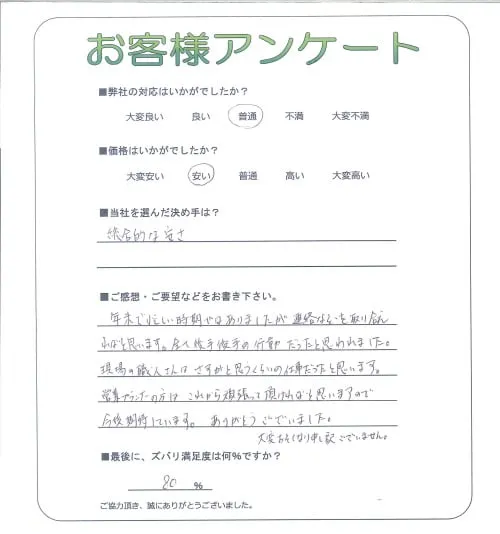 お客様アンケート
■弊社の対応はいかがでしたか？
大変良い 良い 普通 不満 大変不満
■価格はいかがでしたか？
大変安い 安い 普通 高い 大変高い
■当社を選んだ決め手は？
総合的な安さ
■ご感想・ご要望などをお書き下さい。
年末で忙しい時期ではありましたが連絡などを取り合え
ればと思います。全て後手後手の行動だったと思われました。
現場の職人さんは さすがと思うくらいの仕事だったと思います。
営業 の方は これから頑張って頂ければと思いますので
今後期待しています。 ありがとうございました。
大変おそくなり申し訳ございません。
■最後に、ズバリ満足度は何%ですか？
80 %
ご協力頂き、誠にありがとうございました。